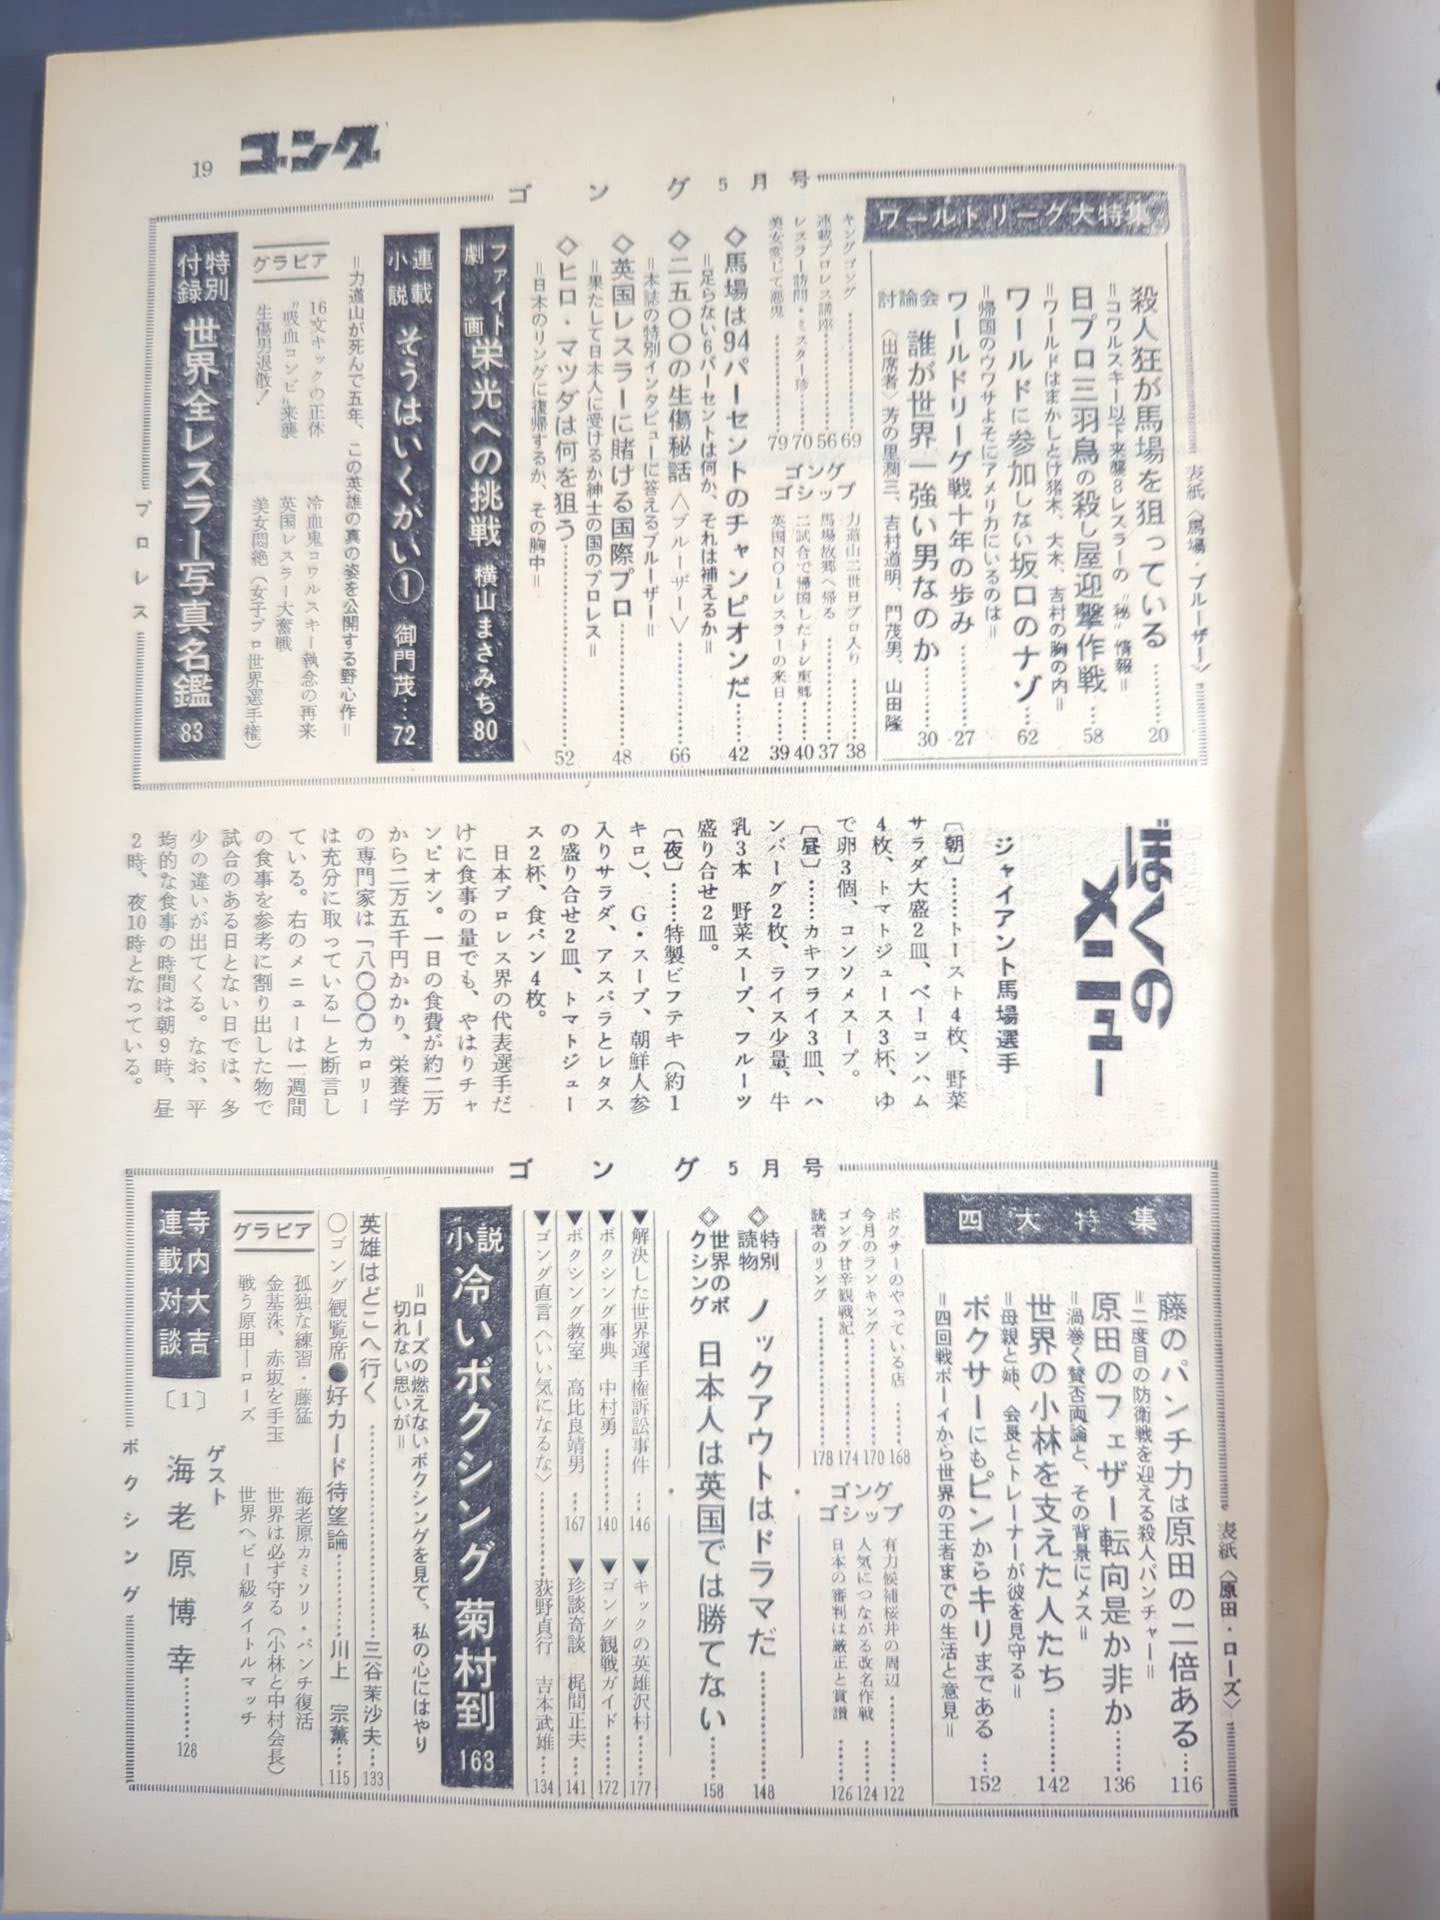 ゴング
19
ゴング 5月号
表紙〈馬場・ブルーザー〉
ワールドリーグ大特集
殺人狂が馬場を狙っている……20
=コワルスキー以下来襲8レスラーの“秘”情報=
日プロ三羽鳥の殺し屋迎撃作戦…58
=ワールドはまかしとけ猪木、大木、吉村の胸の内=
ワールドに参加しない坂口のナゾ…62
=帰国のウワサよそにアメリカにいるのは=
ワールドリーグ戦十年の歩み……27
討論会 誰が世界一強い男なのか……30
〈出席者〉芳の里潤三、吉村道明、門茂男、山田隆
キングゴング……69
連載プロレス講座……56
レスラー訪問・ミスター珍……70
美女変じて悪鬼……79
ゴングゴシップ
力道山二世日プロ入り……38
馬場故郷へ帰る……37
二試合で帰国したトレ東郷……40
英国NO1レスラーの来日……39
◇馬場は94パーセントのチャンピオンだ……42
=足らない6パーセントは何か、それは補えるか=
◇二五〇〇の生傷秘話〈ブルーザー〉……66
=本誌の特別インタビューに答えるブルーザー=
◇英国レスラーに賭ける国際プロ……48
=果たして日本人に受けるか紳士の国のプロレス=
◇ヒロ・マツダは何を狙う……52
=日本のリングに復帰するか、その胸中=
ファイト劇画 栄光への挑戦 横山まさみち 80
連載小説 そうはいくがい① 御門茂…72
=力道山が死んで五年、この英雄の真の姿を公開する野心作=
グラビア
16文キックの正体
“吸血コンビ”来襲
生傷男退散!
冷血鬼コワルスキー執念の再来
英国レスラー大奮戦
美女悶絶(女子プロ世界選手権)
特別付録 世界全レスラー写真名鑑 83
プロレス
ぼくのメニュー
ジャイアント馬場選手
〔朝〕……トースト4枚、野菜
サラダ大盛2皿、ベーコンハム
4枚、トマトジュース3杯、ゆ
で卵3個、コンソメスープ。
〔昼〕……カキフライ3皿、ハ
ンバーグ2枚、ライス少量、牛
乳3本 野菜スープ、フルーツ
盛り合せ2皿。
〔夜〕……特製ビフテキ(約1
キロ)、G・スープ、朝鮮人参
入りサラダ、アスパラとレタス
の盛り合せ2皿、トマトジュー
ス2杯、食パン4枚。
日本プロレス界の代表選手だ
けに食事の量でも、やはりチャ
ンピオン。一日の食費が約二万
から二万五千円かかり、栄養学
の専門家は「八〇〇〇カロリー
は充分に取っている」と断言し
ている。右のメニューは一週間
の食事を参考に割り出した物で
試合のある日とない日では、多
少の違いが出てくる。なお、平
均的な食事の時間は朝9時、昼
2時、夜10時となっている。
ゴング 5月号
表紙〈原田・ローズ〉
四大特集
藤のパンチ力は原田の二倍ある…116
=二度目の防衛戦を迎える殺人パンチャー=
原田のフェザー転向是か非か……136
=渦巻く賛否両論と、その背景にメス=
世界の小林を支えた人たち……142
=母親と姉、会長とトレーナーが彼を見守る=
ボクサーにもピンからキリまである…152
=四回戦ボーイから世界の王者までの生活と意見=
ボクサーのやっている店……168
今月のランキング……170
ゴング甘辛観戦記……174
読者のリング……178
ゴングゴシップ
有力候補桜井の周辺……122
人気につながる改名作戦……124
日本の審判は厳正と賞讃……126
◇特別読物 ノックアウトはドラマだ……148
◇世界のボクシング 日本人は英国では勝てない……158
▼解決した世界選手権訴訟事件…146
▼キックの英雄沢村……177
▼ボクシング事典 中村勇……140
▼ゴング観戦ガイド……172
▼ボクシング教室 高比良靖男…167
▼珍談奇談 梶間正夫…141
▼ゴング直言〈いい気になるな〉……荻野貞行 吉本武雄…134
小説 冷いボクシング 菊村到 163
=ローズの燃えないボクシングを見て、私の心にはやり
切れない思いが=
英雄はどこへ行く……三谷茉沙夫…133
○ゴング観覧席●好カード待望論……川上 宗薫…115
グラビア
孤独な練習・藤猛
金基洙、赤坂を手玉
戦う原田―ローズ
海老原カミソリ・パンチ復活
世界は必ず守る(小林と中村会長)
世界ヘビー級タイトルマッチ
寺内大吉連載対談〔1〕
ゲスト 海老原博幸……128
ボクシング